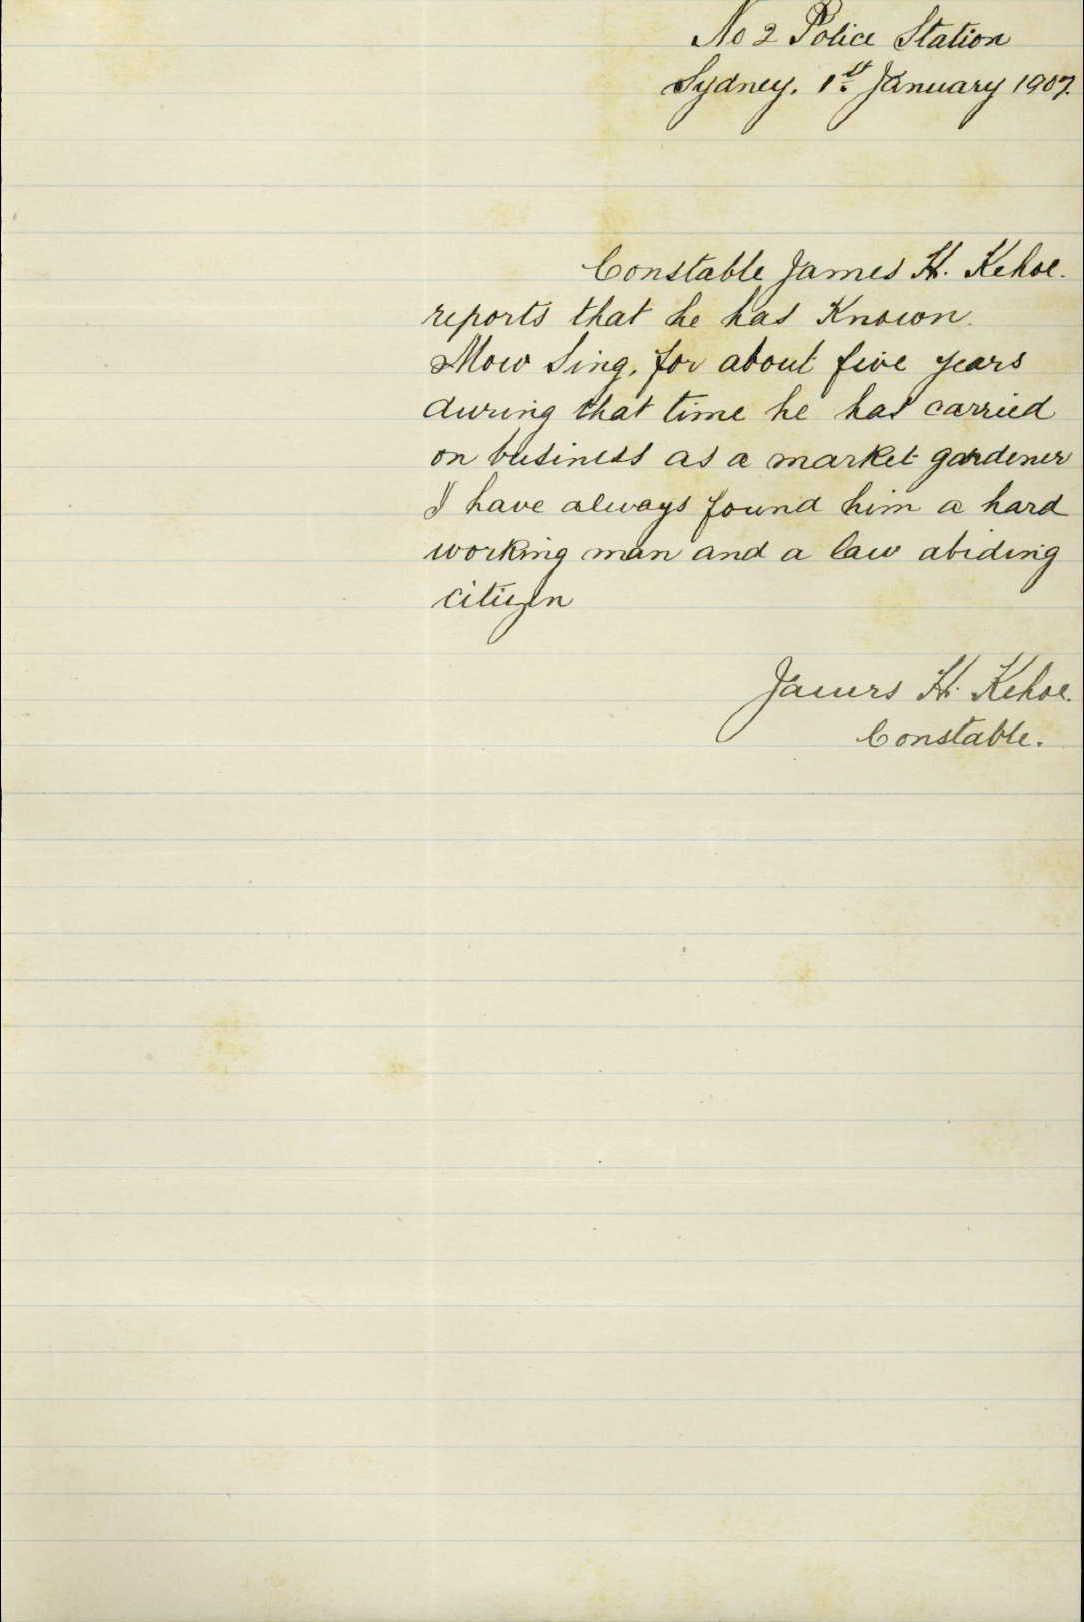 No 2 Police Station
Sydney. 1st January 1907.
Constable James H. Kehoe.
reports that he has Known.
Mow Sing, for about five years
during that time he has carried
on business as a market gardener
I have always found him a hard
working man and a law abiding
citizen
James H. Kehoe.
Constable.